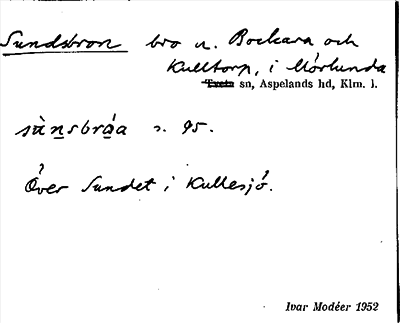 Sundsbron bro n. Bockara och
Kulltorp, i Mörlunda
Tveta sn, Aspelands hd, Klm. l.
sùnsbrǻa s. 95.
Över Sundet i Kullesjö.
Ivar Modéer 1952